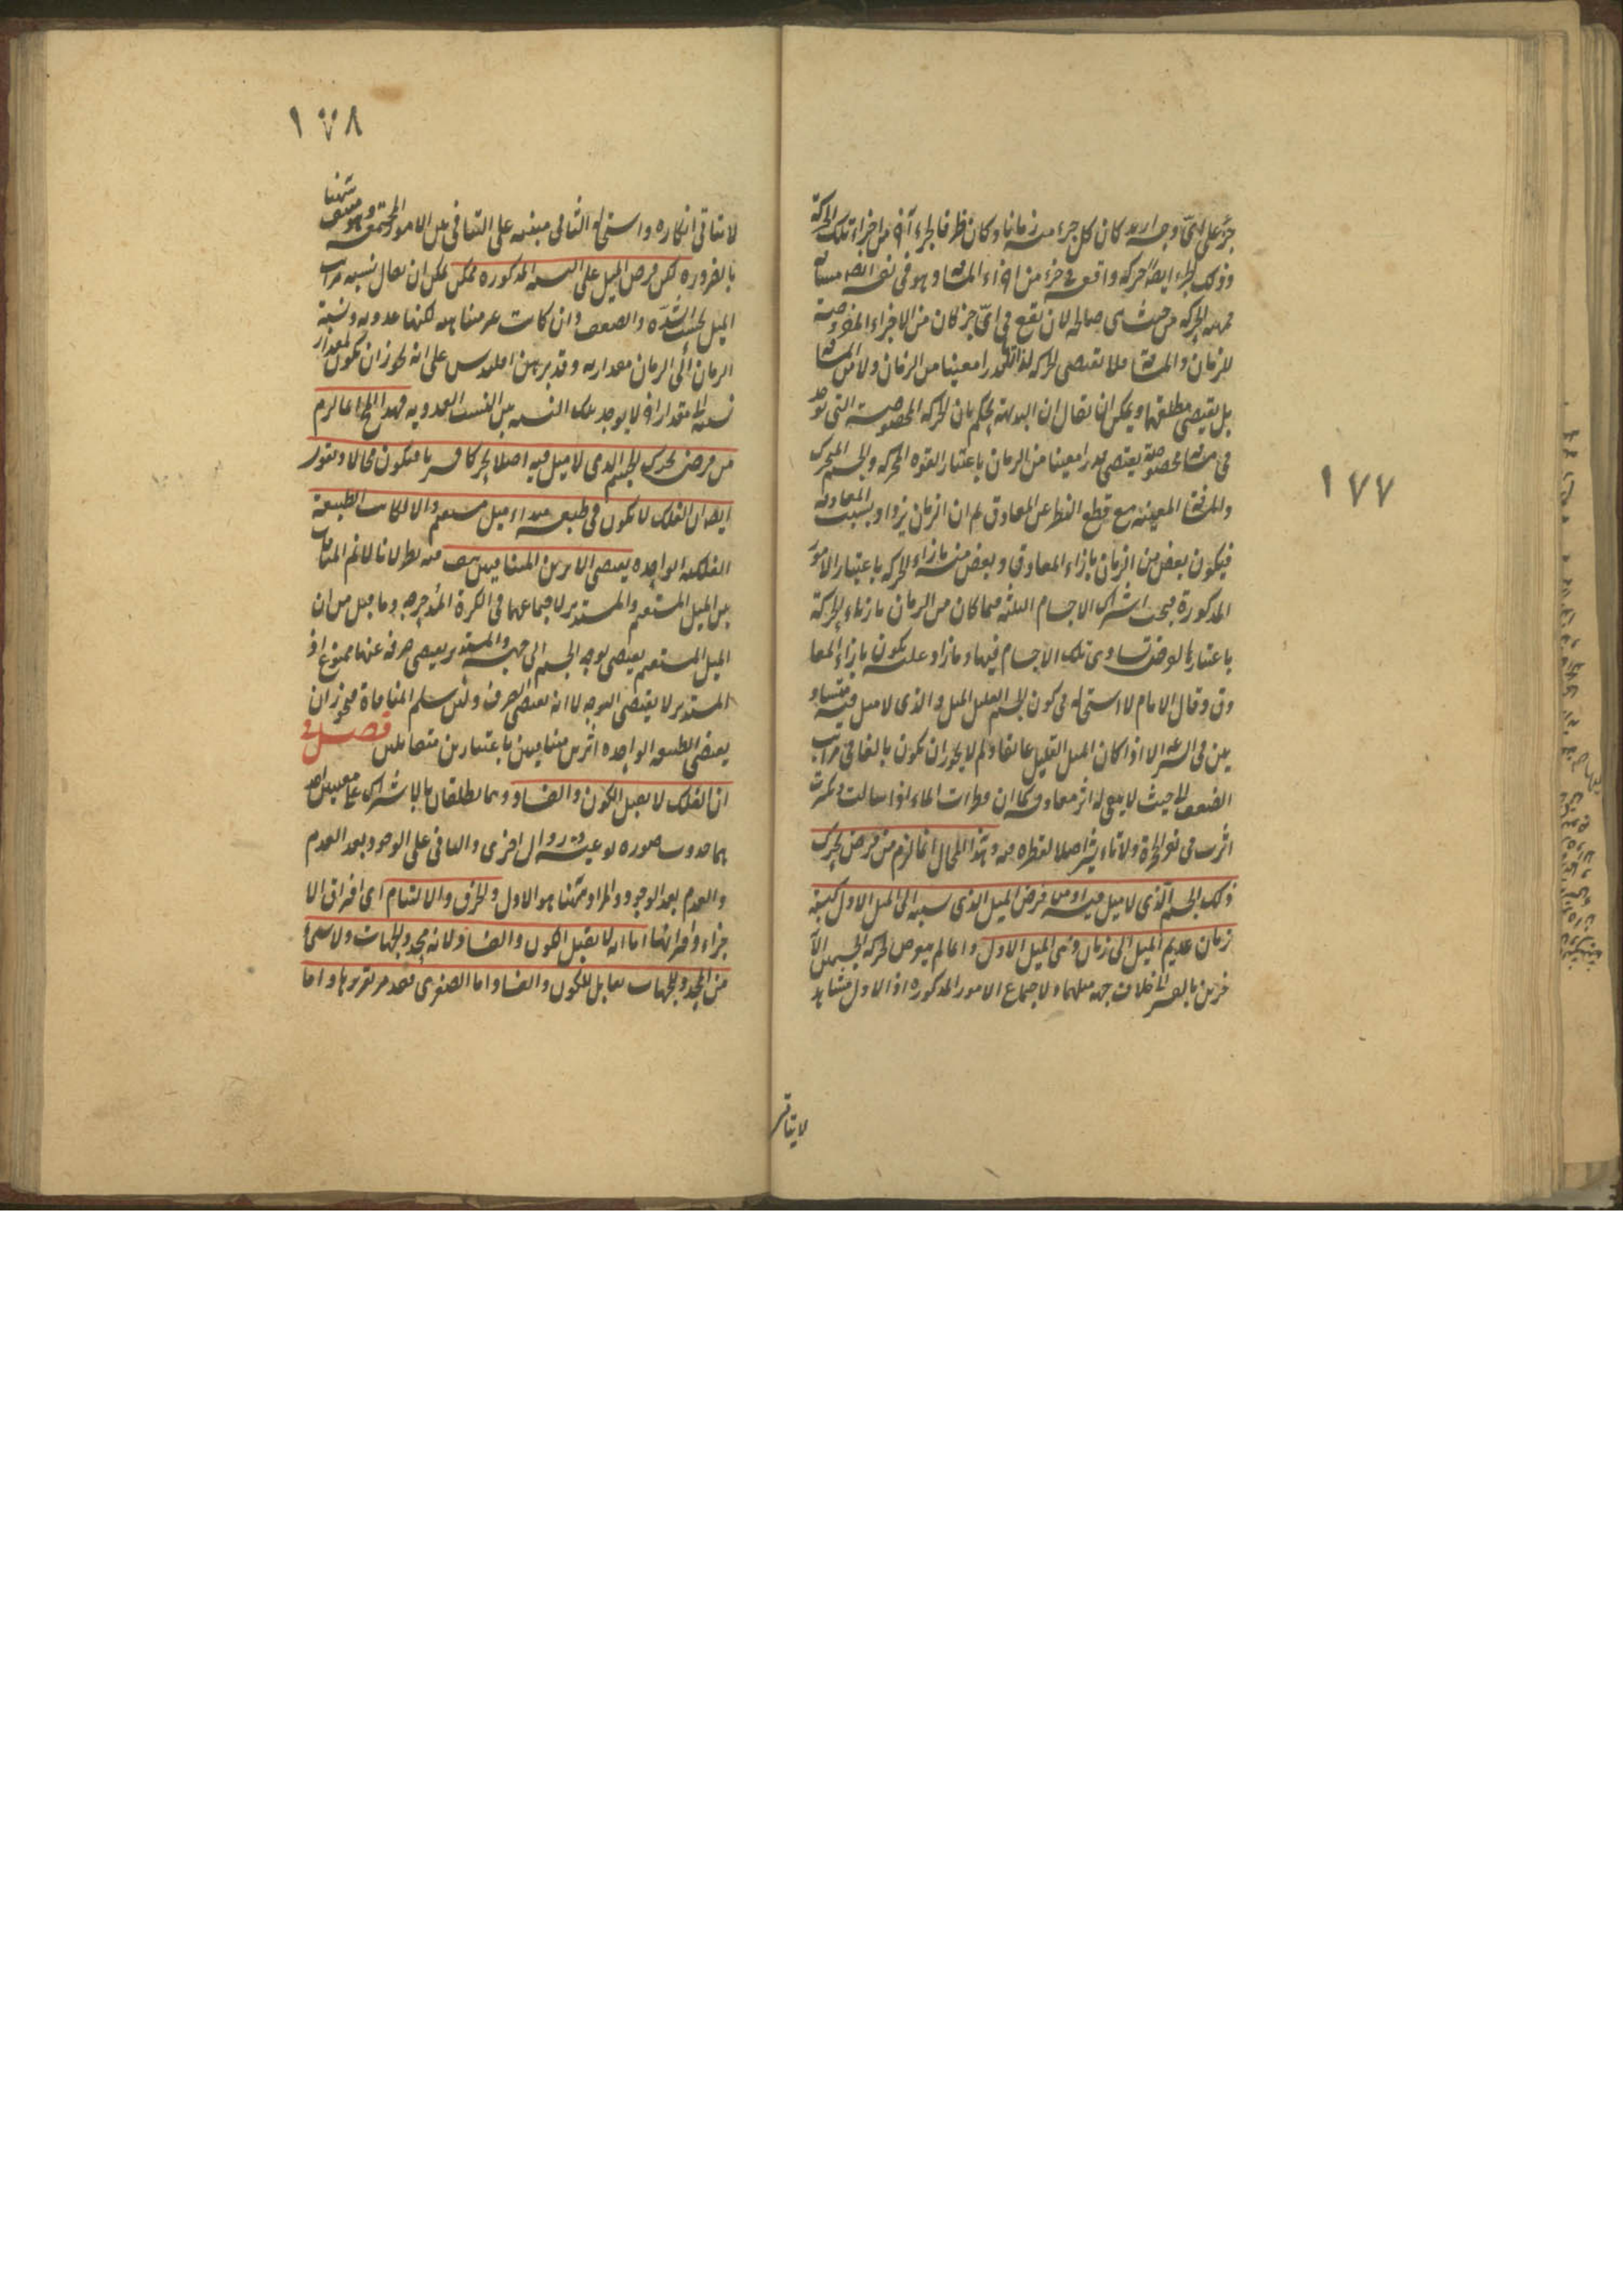 ١٧٧
جزء على اىّ وجه اريد كان كل جزء منه زمانا وكان ظرفا لجزء آخر من اجزاء تلك الحركة
وذلك الجزء ايضا حركة واقعة فى جزء من اجزاء المسافة وهو فى نفسه ايضا مسافة
فمهية الحركة من حيث هى صالحة لان تقع فى اىّ جزء كان من الاجزاء المفروضة
للزمان والمسافة فلا تقتضى الحركة لذاتها قدرا معينا من الزمان ولا من المسافة
بل يقتضى مطلقهما ويمكن ان يقال ان البديهة تحكم بان الحركة المخصوصة التى توجد
فى مسافة مخصوصة يقتضى قدرا معينا من الزمان باعتبار القوة المحركة والجسم المتحرك
والمسافة المعينة مع قطع النظر عن المعاوق ثم ان الزمان يزداد بسبب المعاوقة
فيكون بعض من الزمان بازاء المعاوق وبعض منه بازاء الحركة باعتبار الامور
المذكورة فيجب اشتراك الاجسام الثلثة فيما كان من الزمان بازاء الحركة
باعتبارها لفرض تساوى تلك الاجسام فيها وما زاد عليه يكون بازاء المعا
وق وقال الامام لا استحالة فى كون الجسم القليل الميل والذى لا ميل فيه متساو
يين فى السرعة الا اذا كان الميل القليل عائقا ولم لا يجوز ان يكون بالغا فى مراتب
الضعف الى حيث لا يبقى له اثر معاوق كما ان قطرات الماء اذا سالت وكثرت
اثّرت فى نقر الحجرة ولا تاثير اصلا لقطرة منه وهذا المحال انما لزم من فرض تحرك
ذلك الجسم الذى لا ميل فيه او من فرض الميل الذى نسبته الى الميل الاول كنسبة
زمان عديم الميل الى زمان ذى الميل الاول وانما لم يتعرض لحركة الجسمين الآ
خرين بالقسر الى خلاف جهة ميلهما ولا جتماع الامور المذكورة اذ الاول مشاهد
لا يتاتى
١٧٨
لا يتاتى انكاره واستحالة الثانى مبنية على التنافى بين الامور المجتمعة وهو منتف ههنا
بالضرورة لكن فرض الميل على النسبة المذكورة ممكن يمكن ان يقال نسبة مراتب
الميل بحسب الشدة والضعف وان كانت غير متناهية لكنها عددية ونسبة
الزمان الى الزمان مقدارية وقد برهن اقليدس على انه يجوز ان يكون لمقدار
نسبة الى مقدار آخر لا يوجد تلك النسبة بين النسب العددية فهذا المحال انما لزم
من فرض تحرك الجسم الذى لا ميل فيه اصلا بحركة قسرية فيكون محالا ونقول
ايضا ان الفلك لا يكون فى طبيعته مبداء ميل مستقيم والا لكانت الطبيعة
الفلكية الواحدة يقتضى الاثرين المتنافيين هف منه بطولا نا لا نم المنافاة
بين الميل المستقيم والمستدير لاجتماعهما فى الكرة المدحرجة وما قيل من ان
الميل المستقيم يقتضى توجه الجسم الى جهة والمستدير يقتضى صرفه عنها ممنوع اذ
المستدير لا يقتضى التوجه لا انه يقتضى الصرف ولئن سلم المنافاة فيجوز ان
يقتضى الطبيعة الواحدة اثرين متنافيين باعتبارين متقابلين فصل فى
ان الفلك لا يقبل الكون والفساد وهما يطلقان بالاشتراك على معنيين احد
هما حدوث صورة نوعية وزوال اخرى والثانى على الوجود بعد العدم
والعدم بعد الوجود والمراد ههنا هو الاول والخرق والالتيام اى افتراق الا
جزاء واقترانها اما انه لا يقبل الكون والفساد فلانه محدد الجهات ولا شئ
من المحدد للجهات بقابل للكون والفساد اما الصغرى فقد مر تقريرها واما